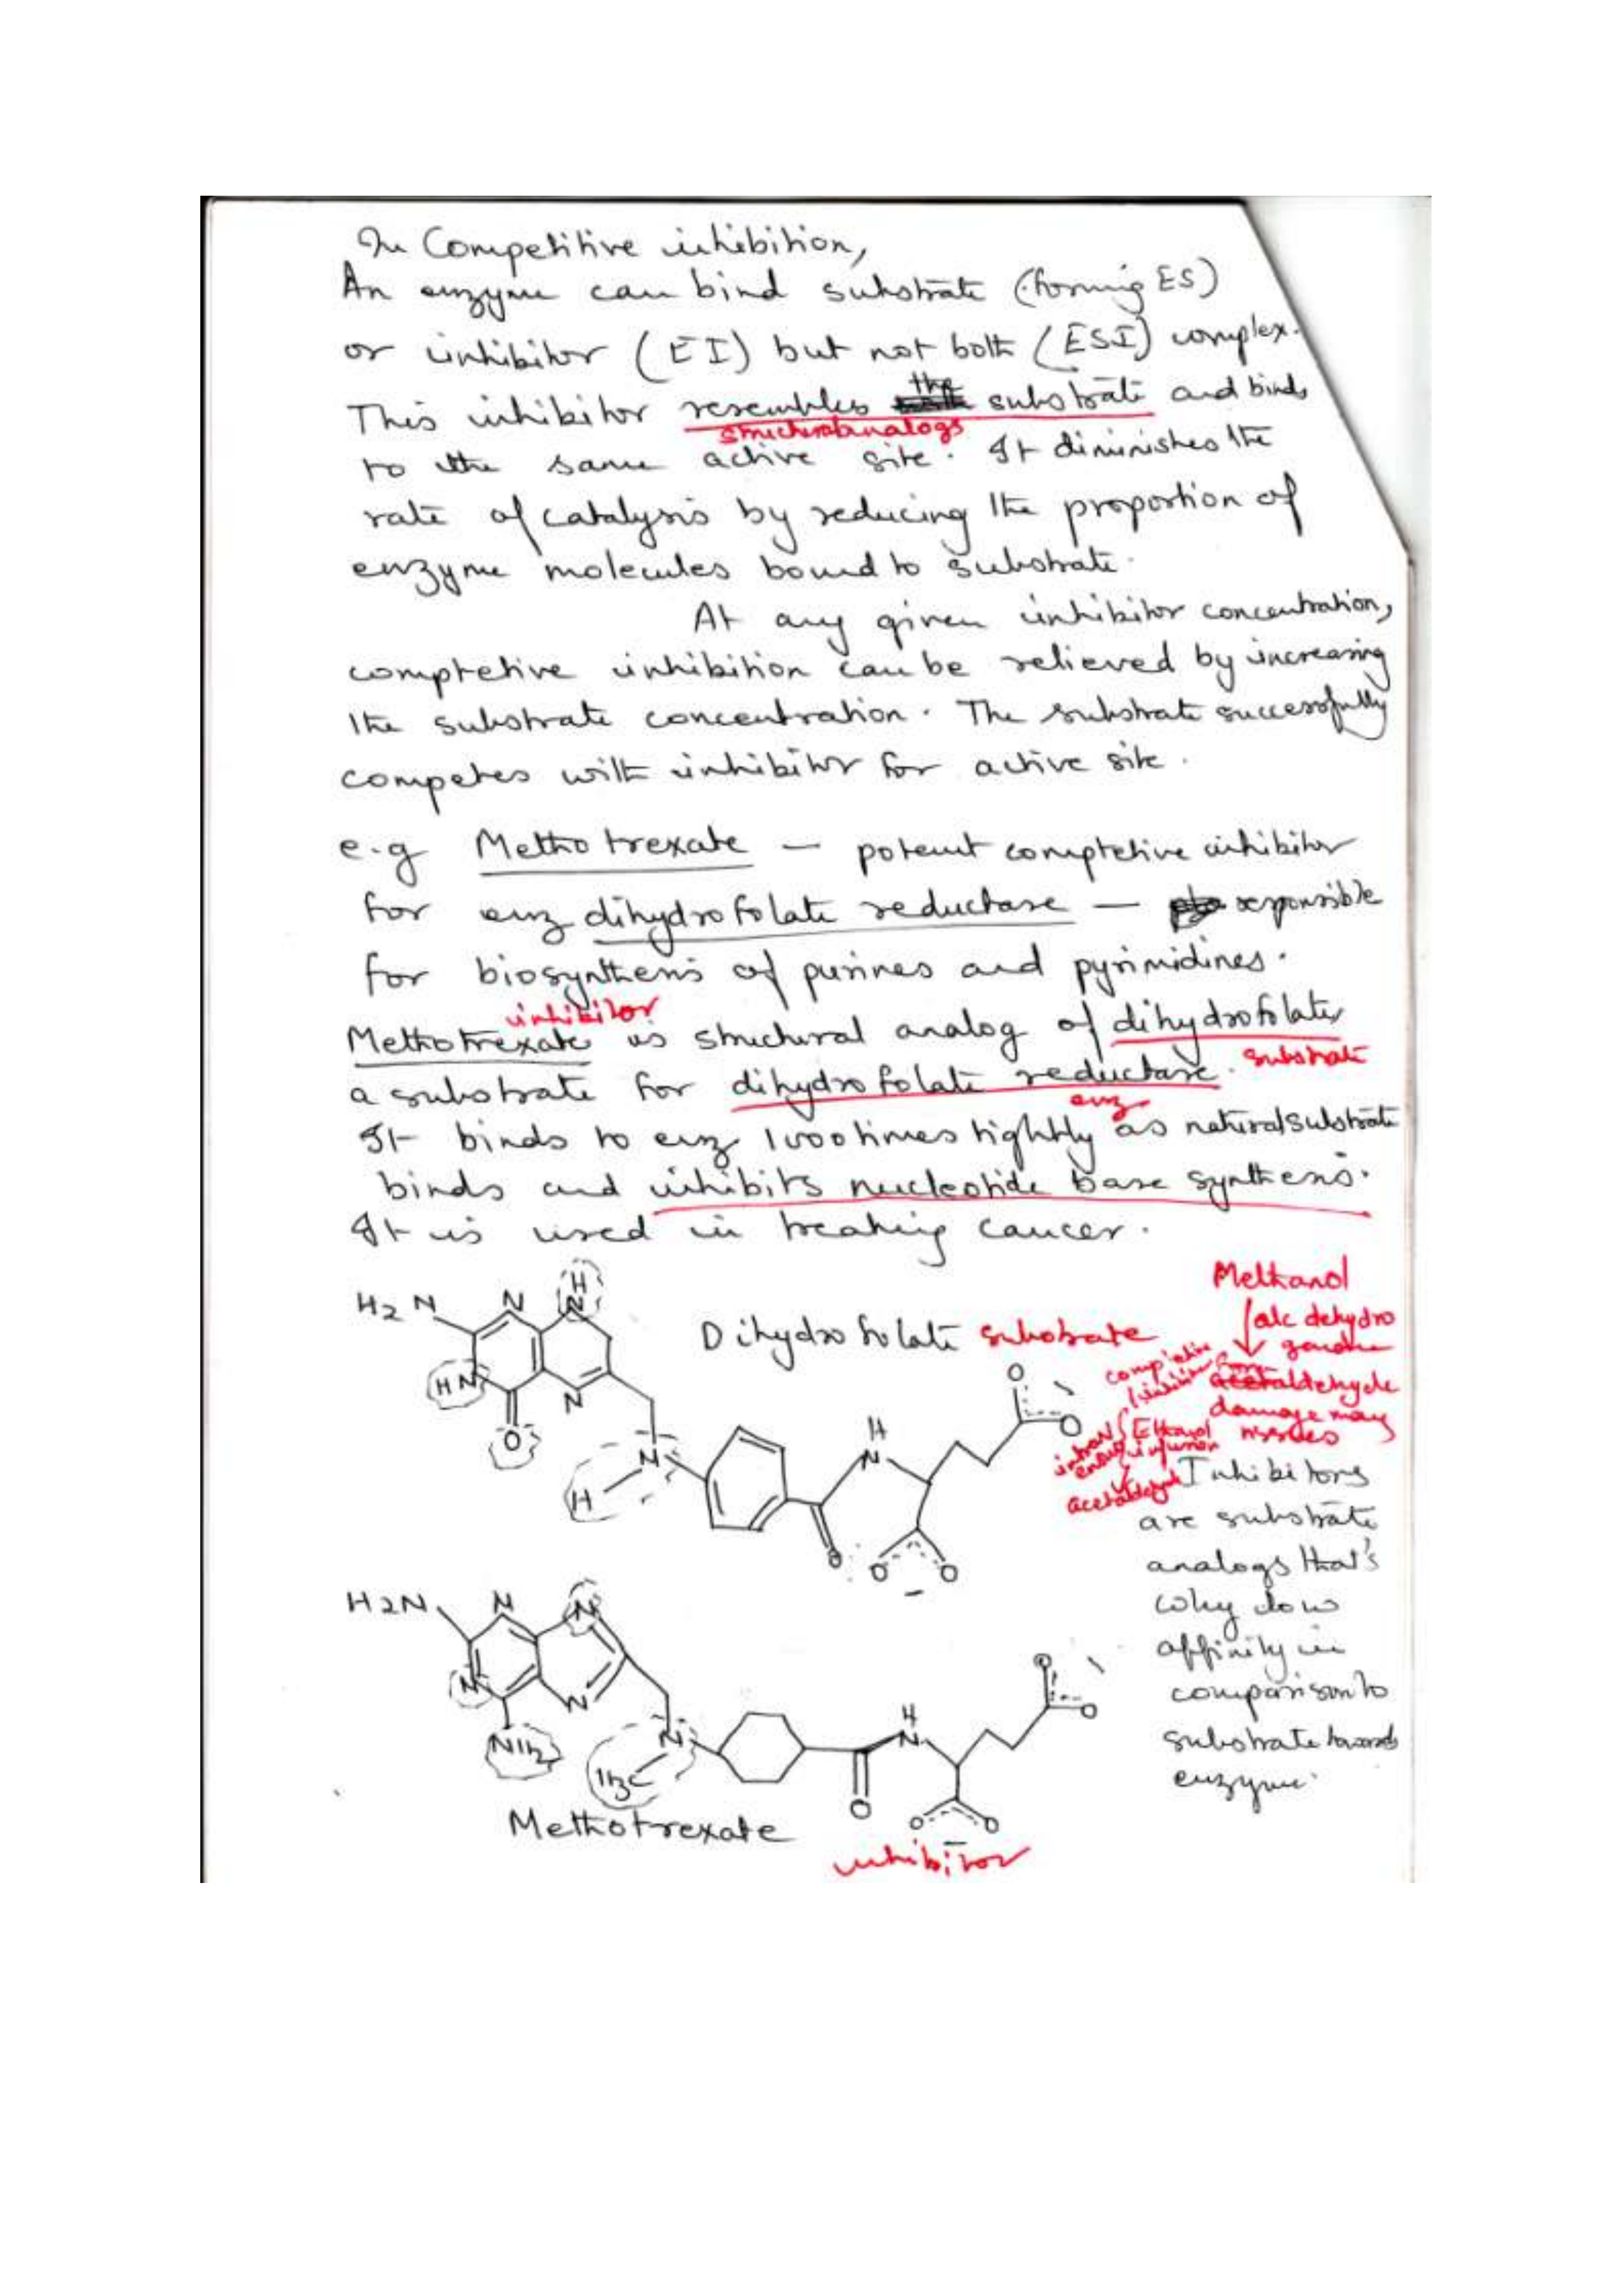 In Competitive inhibition,
An enzyme can bind substrate (forming ES)
or inhibitor (EI) but not both (ESI) complex.
This inhibitor resembles the substrate and binds
structural analogs
to the same active site. It diminishes the
rate of catalysis by reducing the proportion of
enzyme molecules bound to substrate.
At any given inhibitor concentration,
comptetive inhibition can be relieved by increasing
the substrate concentration. The substrate successfully
competes with inhibitor for active site.
e.g Methotrexate — potent comptetive inhibitor
for enz dihydrofolate reductase — responsible
for biosynthesis of purines and pyrimidines.
inhibitor
Methotrexate is structural analog of dihydrofolate,
substrate
a substrate for dihydrofolate reductase.
enz
It binds to enz 1000 times tightly as natural substrate
binds and inhibits nucleotide base synthesis.
It is used in treating cancer.
H2N N H N
HN N
O
Dihydrofolate substrate
N H
H N
O O
O O O
Methanol
alc dehydro
genase
aldehyde
damage many
tissues
competitive
inhibitor
Ethanol
infusion
acetaldehyde
Inhibitors
are substrate
analogs that's
why low
affinity in
comparison to
substrate towards
enzyme.
H2N N N
N N
NH2
N
H3C
H N
O O
O O O
Methotrexate
inhibitor